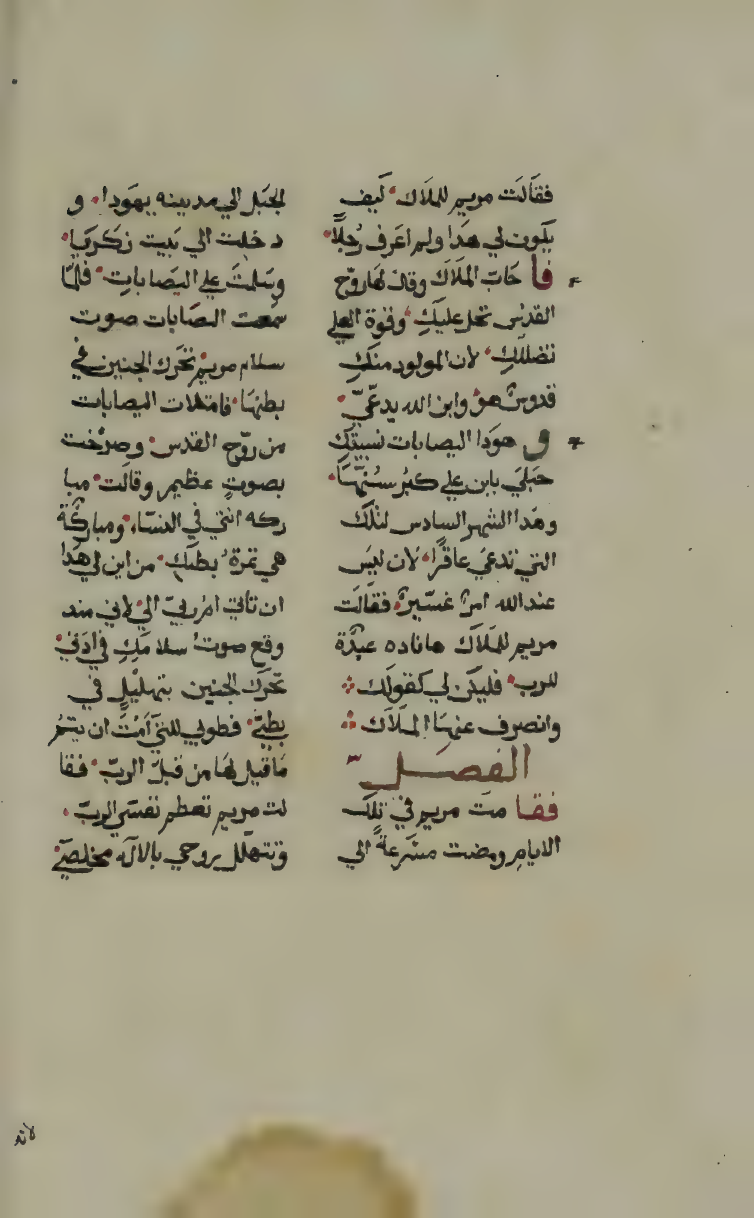 فقالت مريم للملاك كيف
يكون لي هدا ولم اعرف رجلًا
فاجاب الملاك وقال لها روح
القدس تحل عليكِ وقوة العلي
تضللكِ لان المولود منكِ
قدوسٌ هو وابن الله يدعى
وهودا اليصابات نسيبتكِ
حبلي بابن علي كبر سنها
وهدا الشهر السادس لتلك
التي تدعى عاقرًا لان ليس
عند الله امرٌ عسيرٌ فقالت
مريم للملاك هانا ده عبدة
للرب فليكن لي كقولك
وانصرف عنها الملاك
الفصل
فقامت مريم في تلك
الايام ومضت مسرعةً الي
الجبل الي مدينه يهودا و
دخلت الي بيت زكريا
وسلمت علي اليصابات فلما
سمعت اليصابات صوت
سلام مريم تحرك الجنين في
بطنها فامتلات اليصابات
من روح القدس وصرخت
بصوتٍ عظيم وقالت مبا
ركه انتي في النسا ومباركة
هي تمرة بطنكِ من اين لي هدا
ان تاتي ام ربي الي لاني مند
وقع صوت سلامكِ في ادني
تحرك الجنين بتهليلٍ في
بطني فطوبي للتي امنت ان يتم
ما قيل لها من قبل الرب فقا
لت مريم تعظم نفسي الرب
وتتهلل روحي بالاله مخلصي
لانه